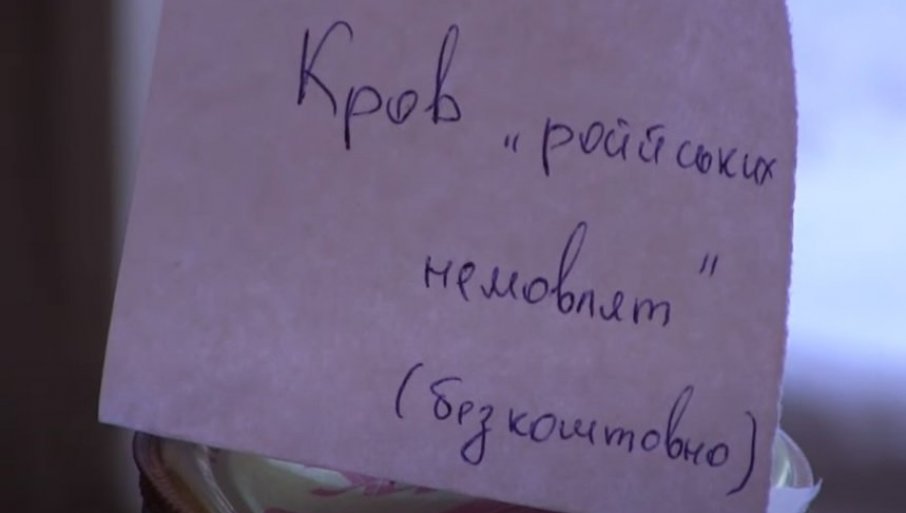 Кров
„ройських
немовлят"
(безкоштовно)